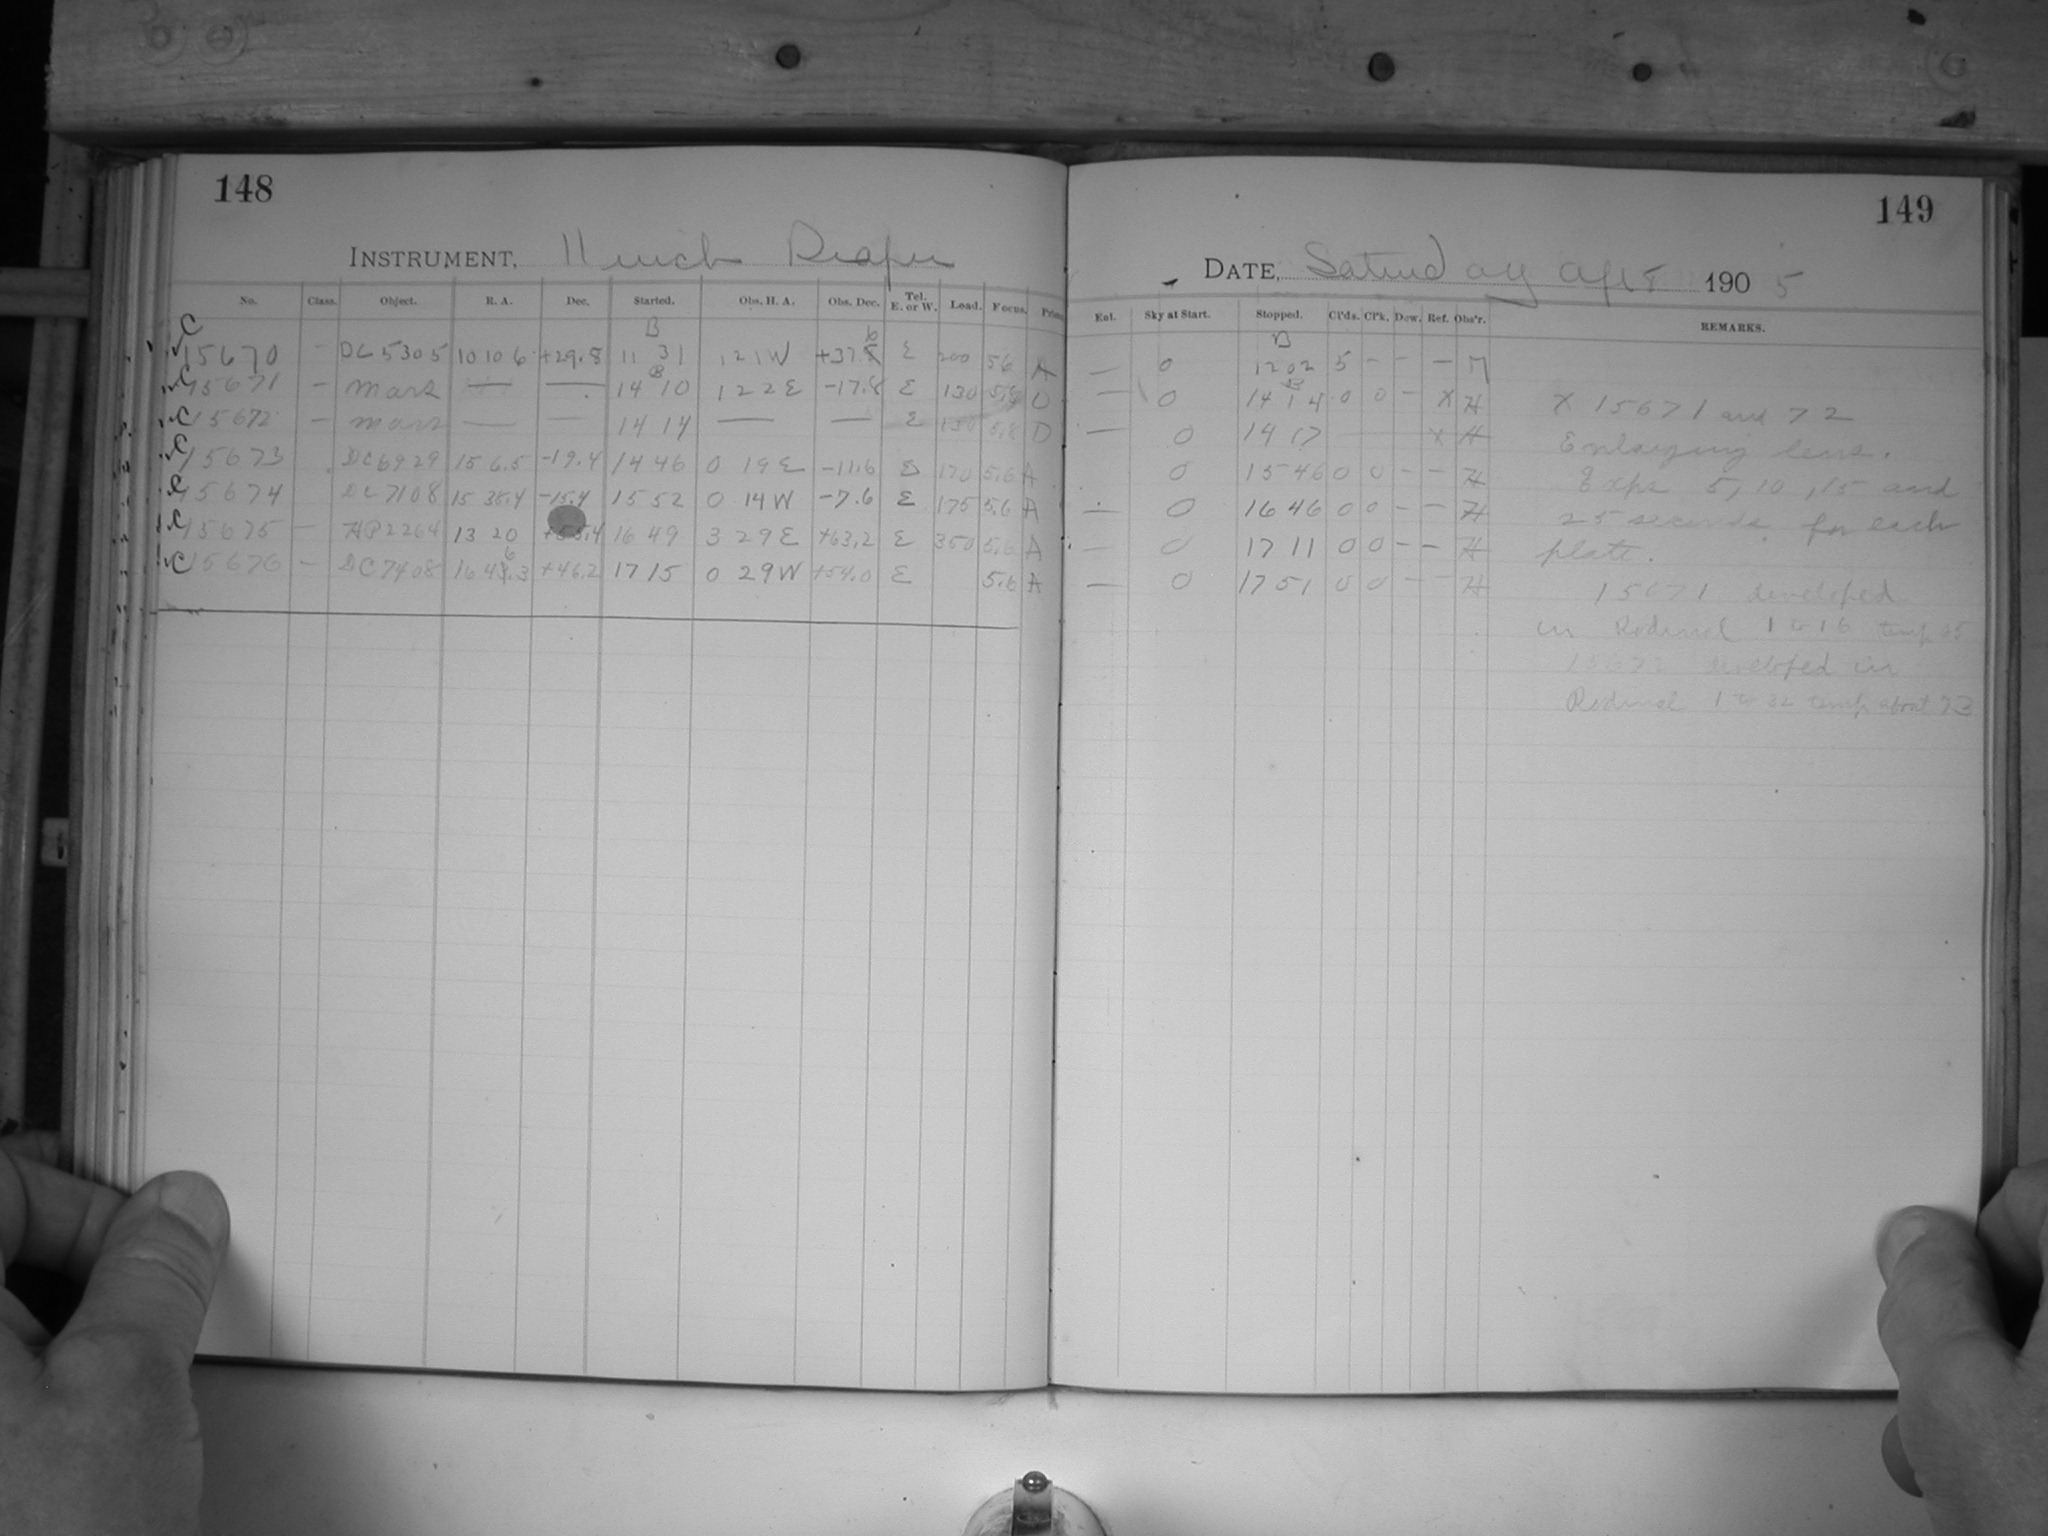 148
INSTRUMENT, 11 inch Draper
No. Class. Object. R. A. Dec. Started. Obs. H. A. Obs. Dec. Tel. E. or W. Load. Focus.
C B 6
15670 – DC 5305 10 10 6 +29.8 11 31 1 21 W +37.8 E 200 5.6 A
C 15671 – Mars — — 14 10 1 22 E -17.8 E 130 5.8 D
C 15672 – Mars — — 14 14 — — E 130 5.8 D
C 15673 DC 6929 15 6.5 -19.4 14 46 0 19 E -11.6 E 170 5.6 A
C 15674 DC 7108 15 38.4 -15.4 15 52 0 14 W -7.6 E 175 5.6 A
C 15675 – HP 2264 13 20 +55.4 16 49 3 29 E +63.2 E 350 5.6 A
C 15676 – DC 7408 16 46.3 +46.2 17 15 0 29 W +54.0 E 5.6 A
149
DATE, Saturday Apl 8 1905
Sky at Start. Stopped. Cl'ds. Cl'k. Dew. Ref. Obs'r. REMARKS.
B
— 0 12 02 5 – – – M
— 0 14 14 0 0 – X H
— 0 14 17 X H
0 15 46 0 0 – – H
— 0 16 46 0 0 – – H
— 0 17 11 0 0 – – H
— 0 17 51 0 0 – – H
X 15671 and 72
Enlarging lens.
Exps 5, 10, 15 and
25 seconds for each
plate.
15671 developed
in Rodinal 1 to 16 temp 65
15672 developed in
Rodinal 1 to 32 temp about 73